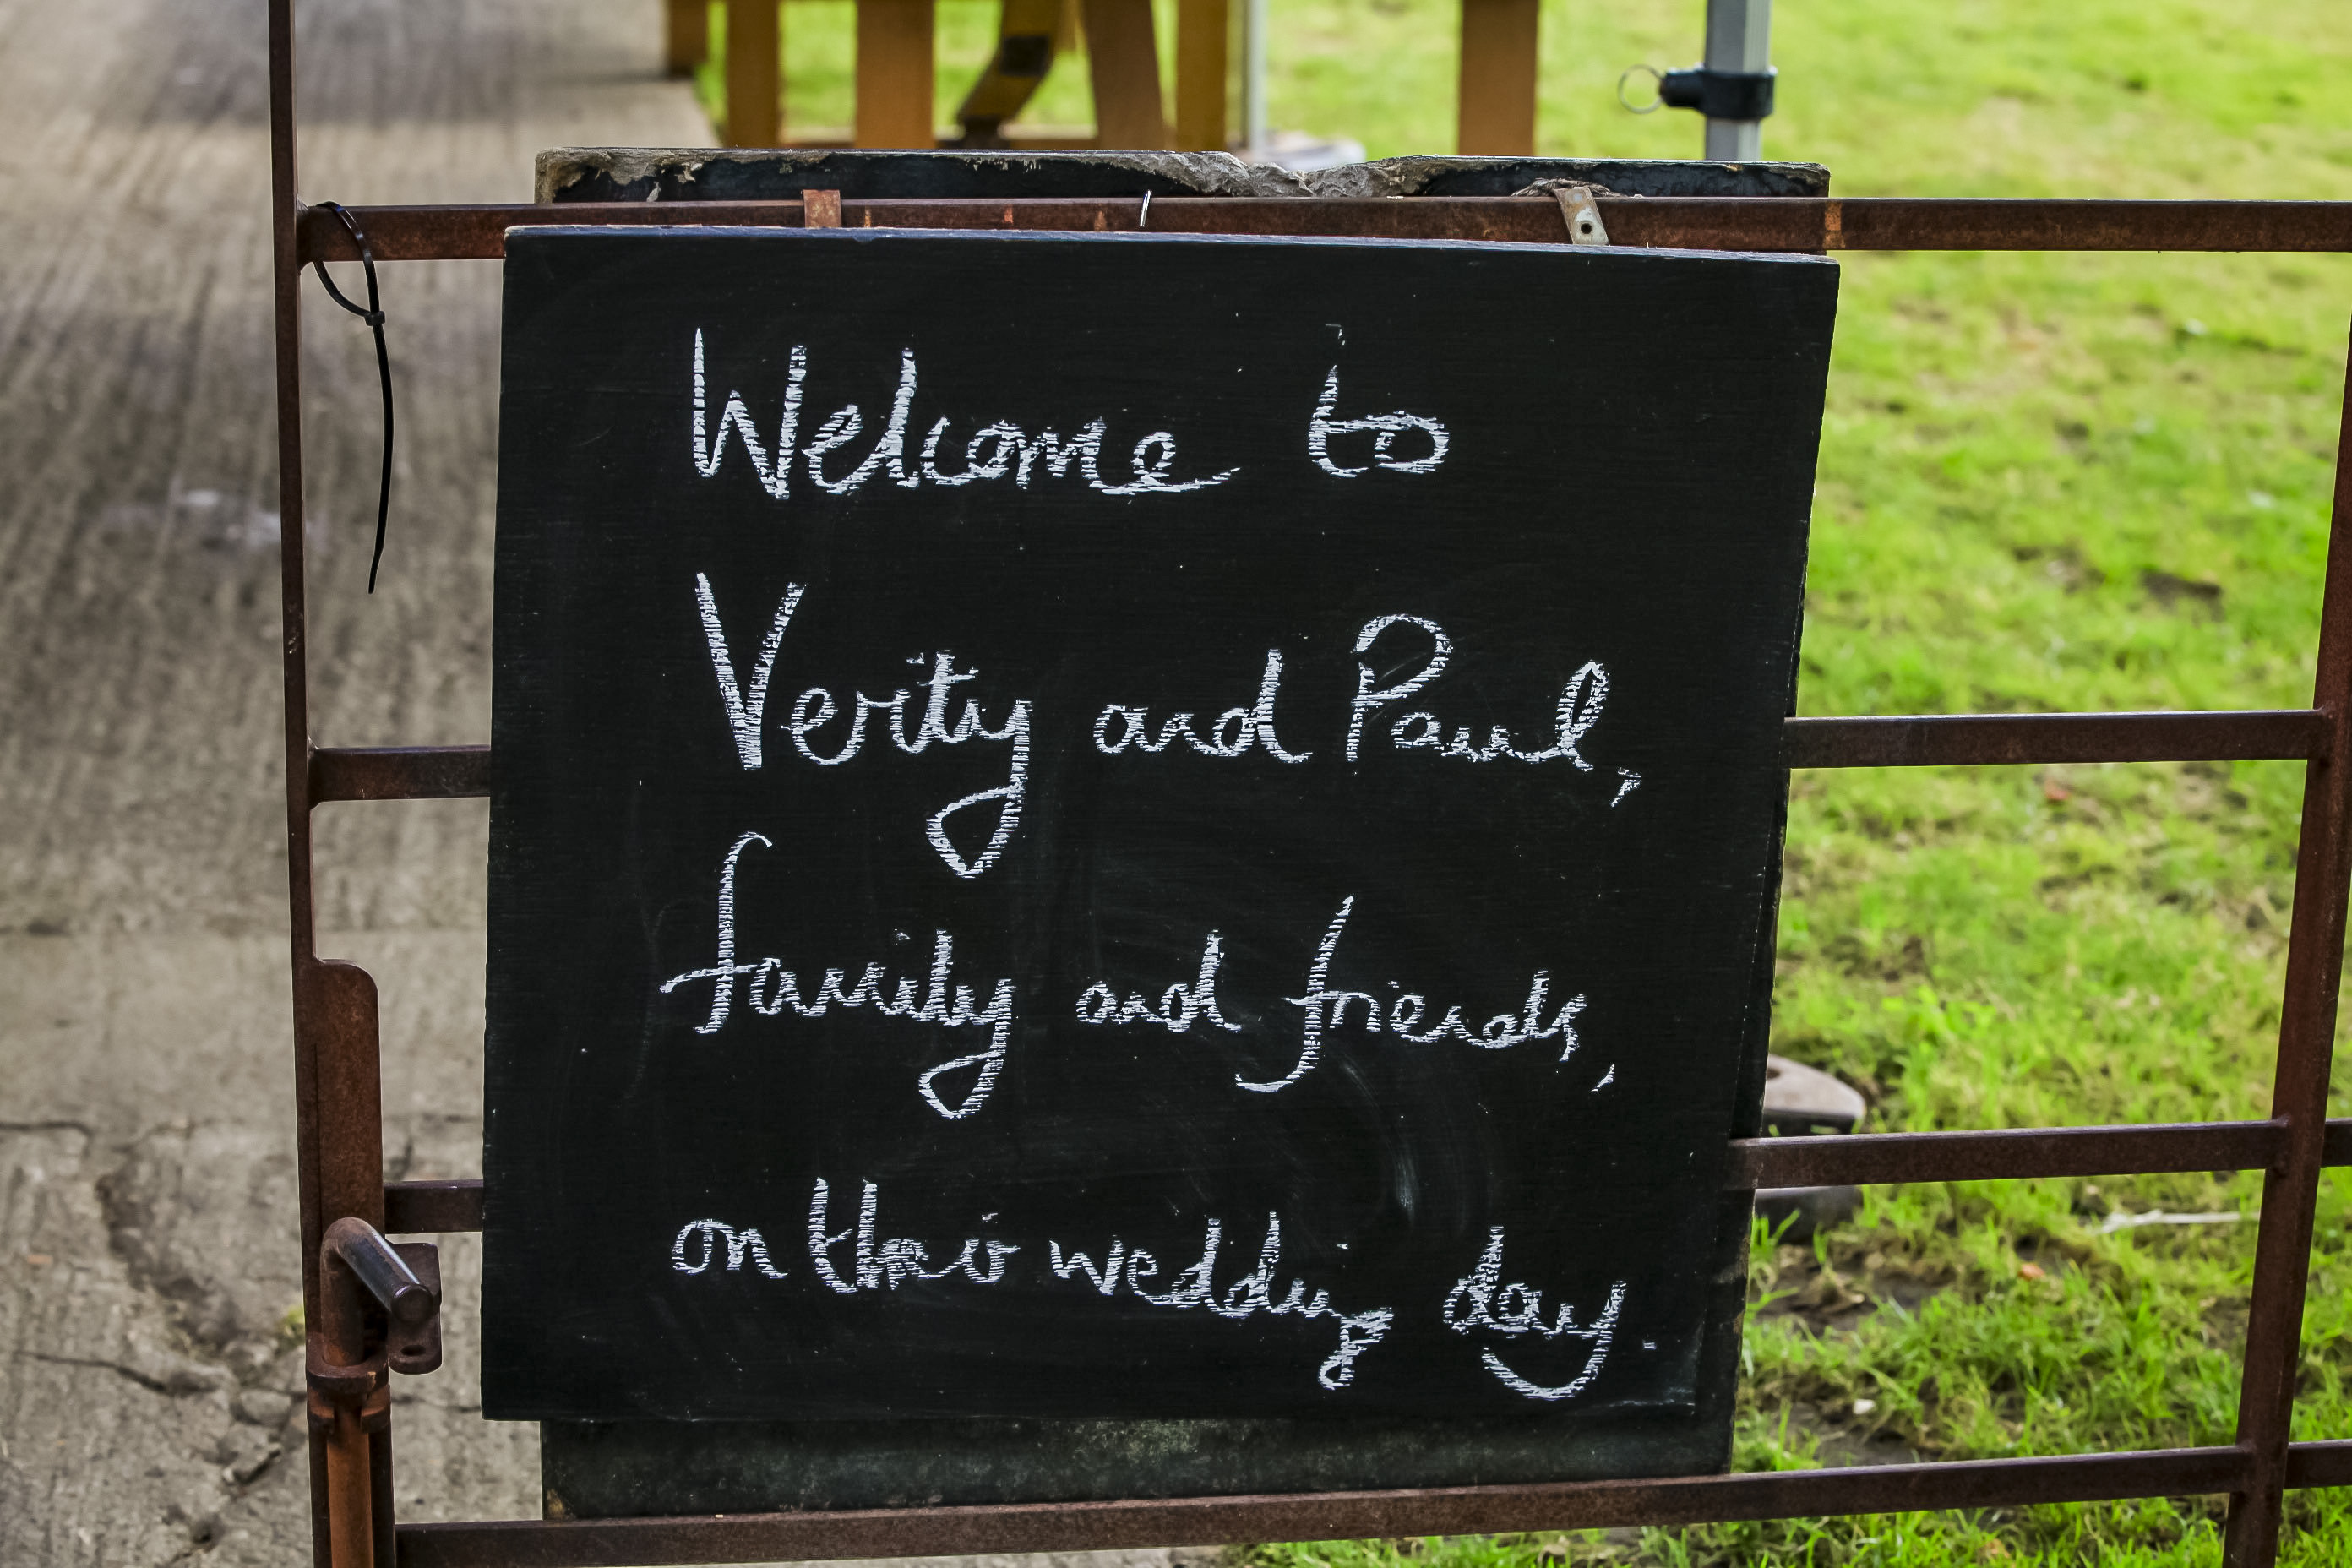 Welcome to
Verity and Paul,
family and friends,
on their wedding day.